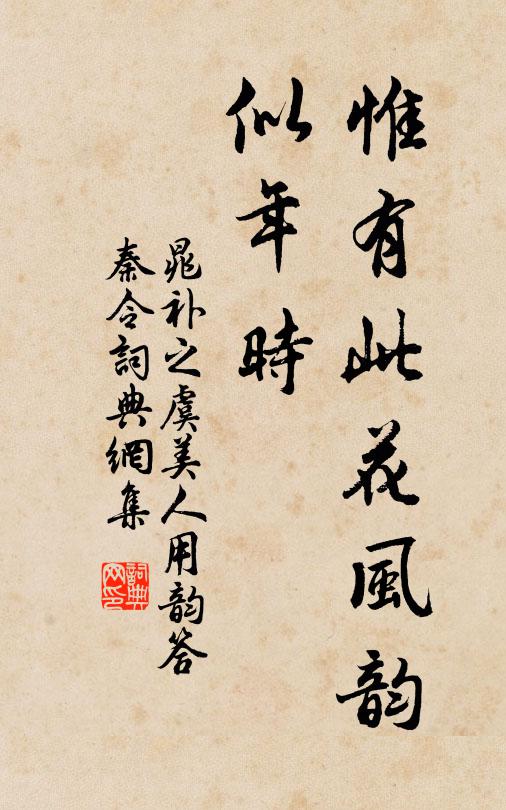 惟有此花風韵
似年時
晁补之虞美人用韵答
秦令詞典網集
詞典
网印